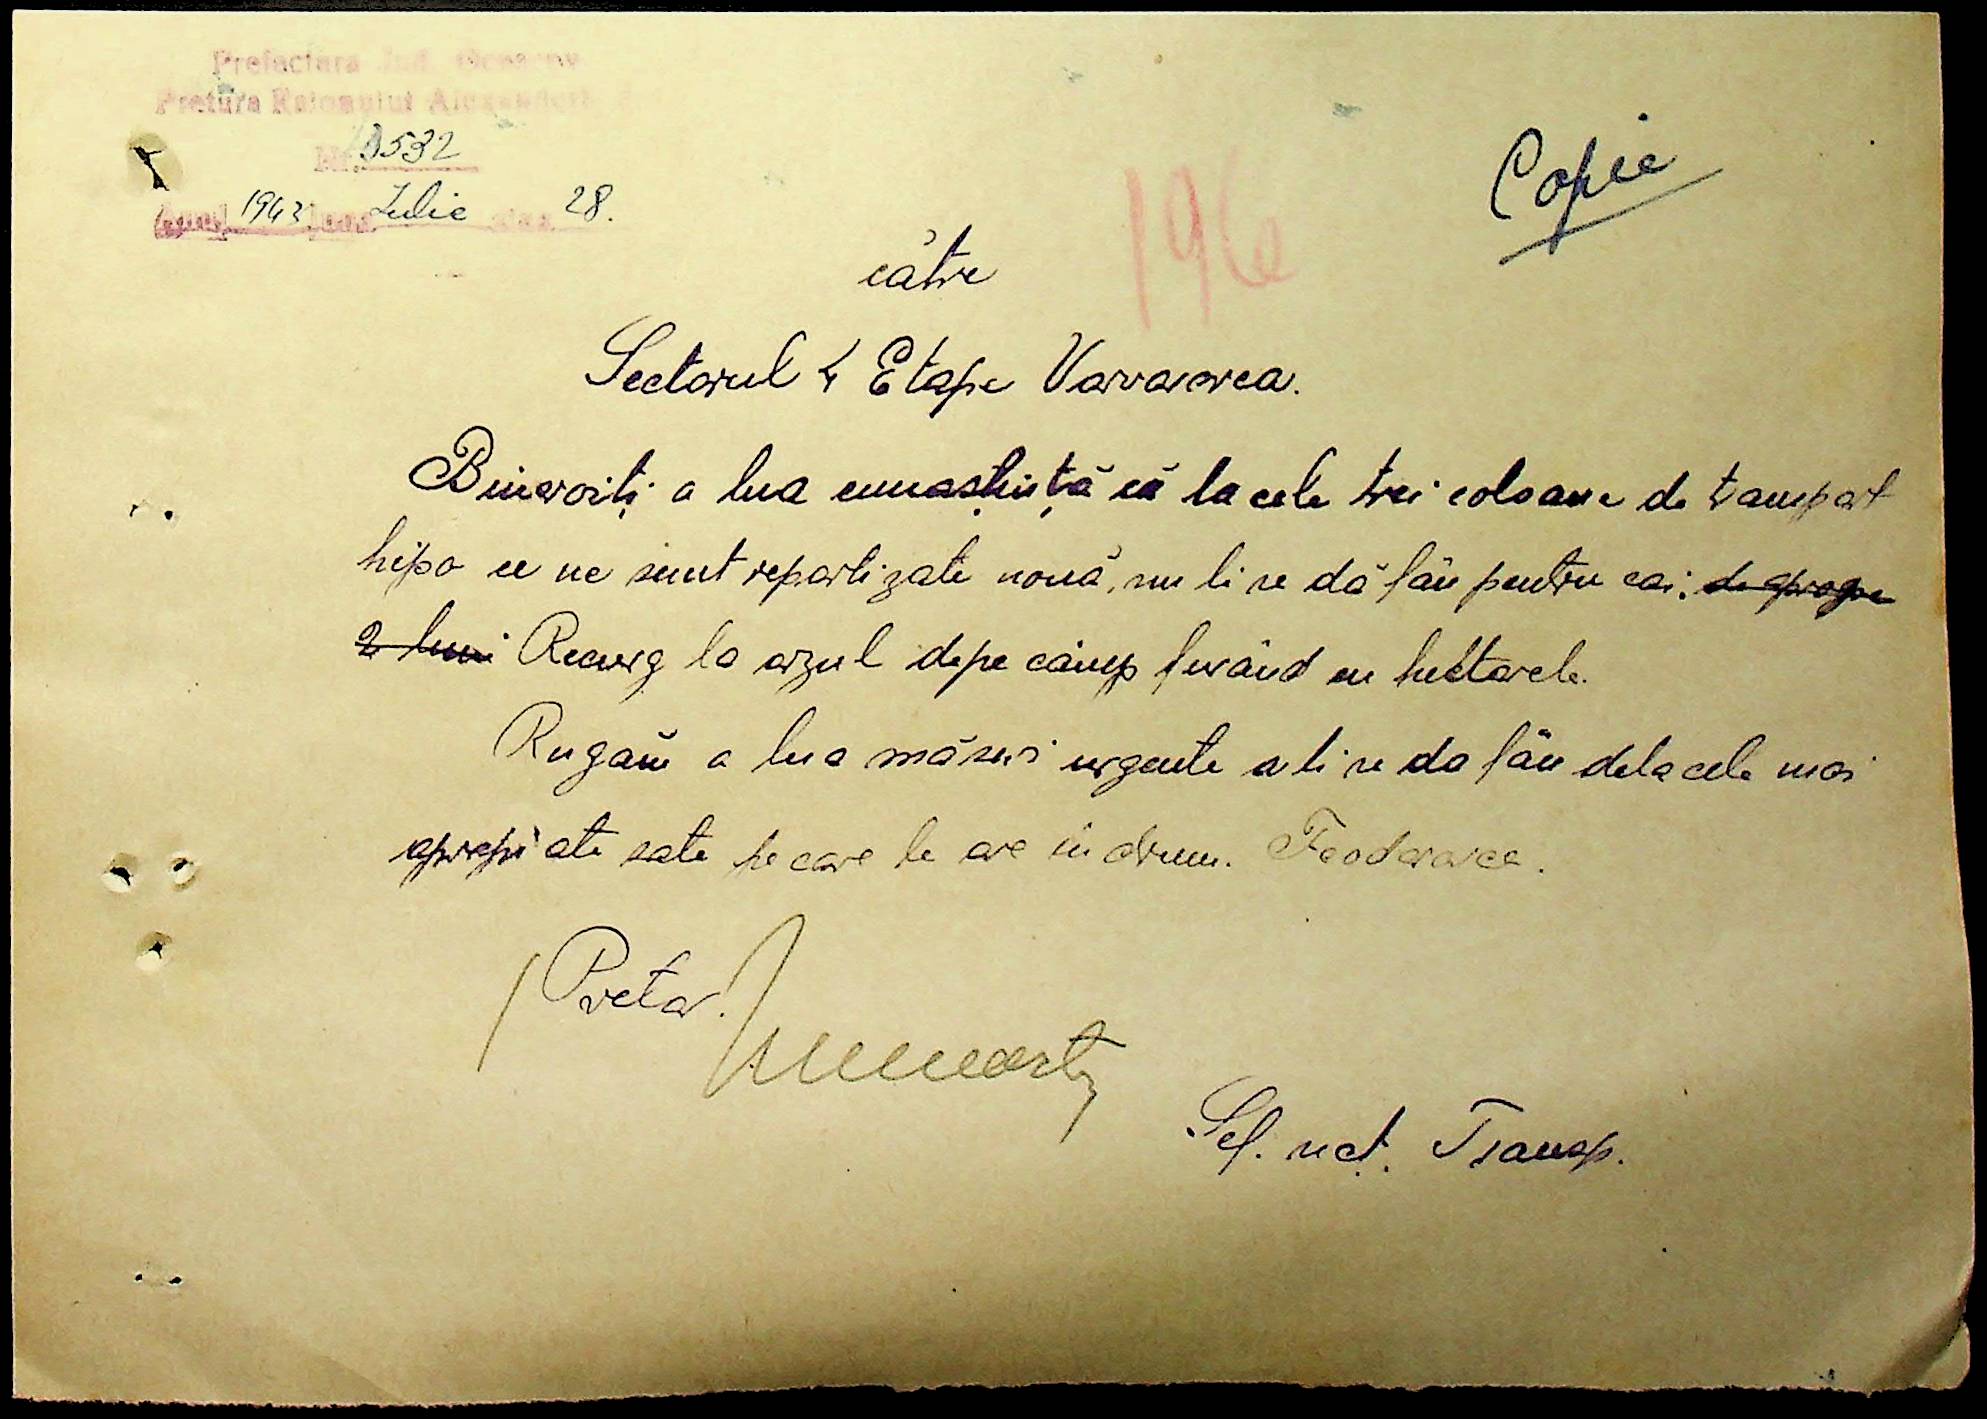 Prefectura Jud.
Pretura Raionului Alexandr
Nr. 3532
Anul 1943 Luna Iulie Ziua 28.
Copie
196
către
Sectorul 4 Etape Varvarovca.
Binevoiți a lua cunoștință că la cele trei coloane de transport
hipo ce ne sunt repartizate nouă, nu li se dă fân pentru cai; de aproape
2 luni Recurg la orzul depe câmp furând cu hectarele.
Rugăm a lua măsuri urgente a li se da fân dela cele mai
apropiate sate pe care le are în drum. Feodorovca.
Pretor.
Șef. sect. Transp.